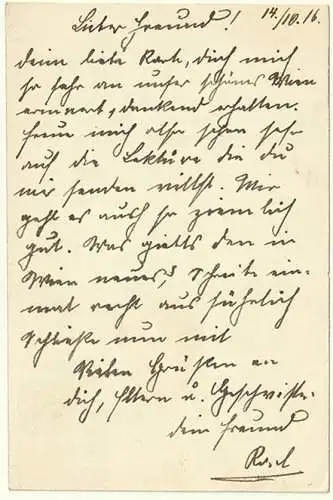 Lieber Freund! 14./10.16.
deine liebe Karte, die mich
so sehr an unser schönes Wien
erinnert, dankend erhalten.
freue mich schon sehr
auf die Lektüre die du
mir senden willst. Mir
geht es auch so ziemlich
gut. Was giebts den in
Wien neues, Schreibe ein-
mal recht ausführlich
Schließe nun mit
Vielen Grüßen an
dich, Eltern u. Geschwister
dein Freund
Karl